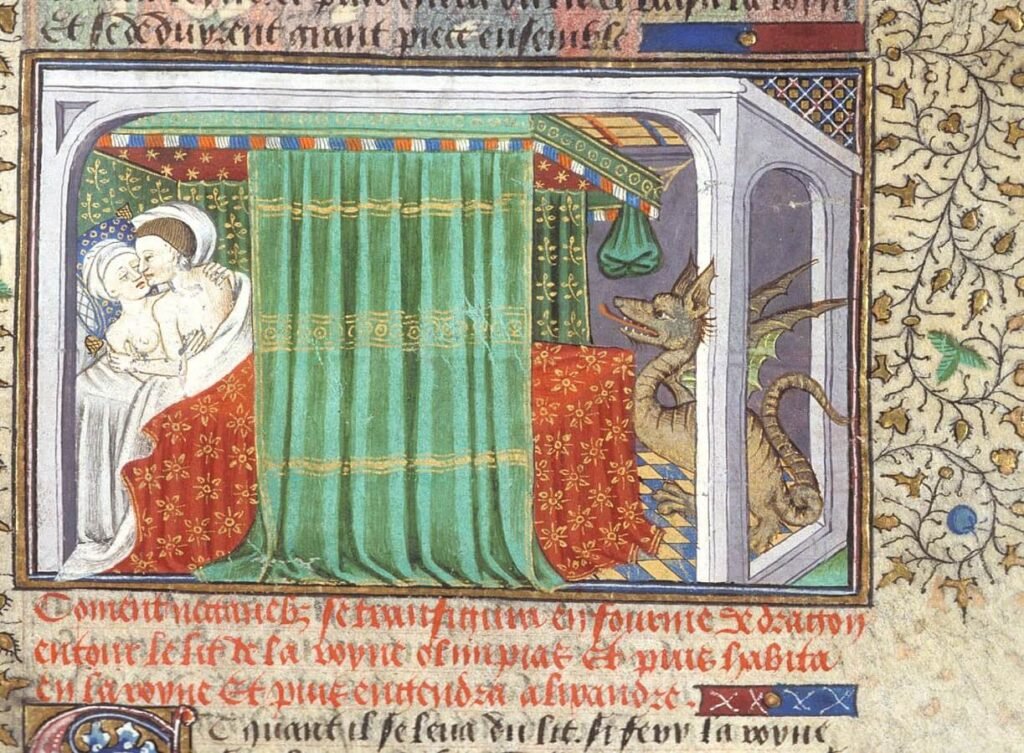 et puis la royne
Et se deduyrent grant piece ensemble
Coment nectanebz se transfigura en fourme de dragon
entour le lit de la royne olimpias Et puis habita
en la royne Et puis engendra alixandre.
Et quant il se leua du lit. si fery la royne